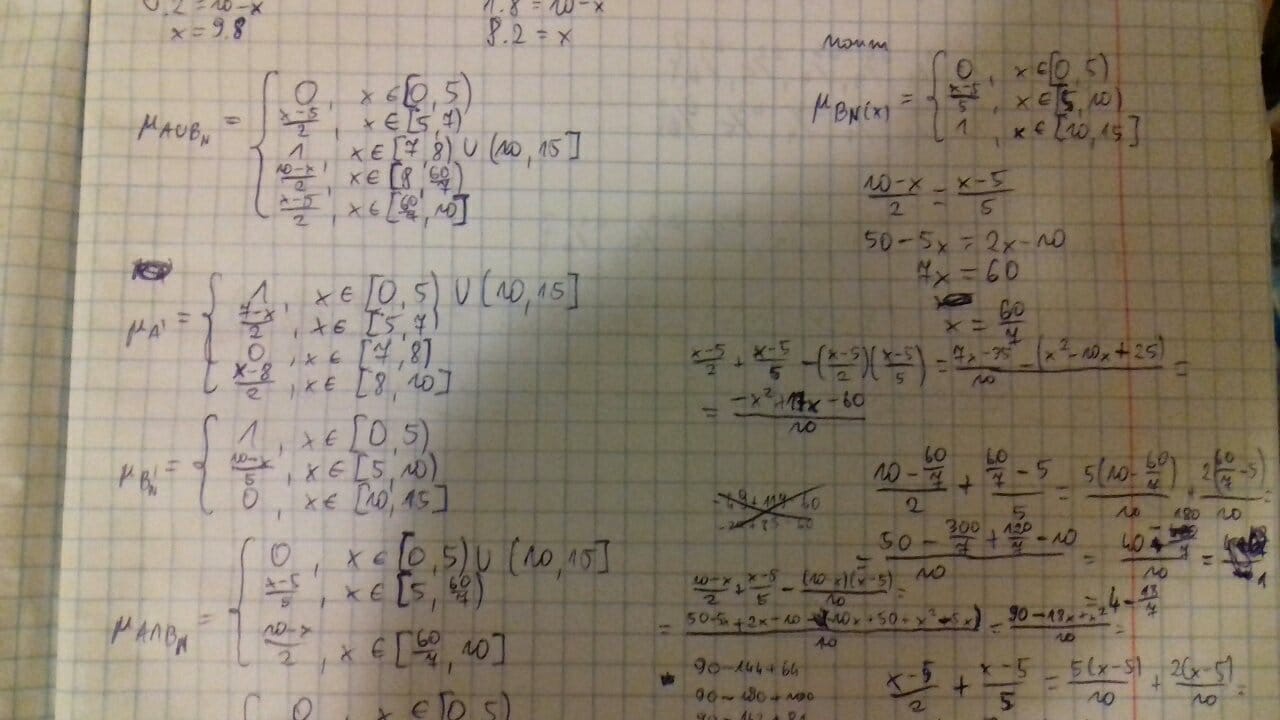 0.2 = 10-x
x = 9.8
1.8 = 10-x
8.2 = x
μ_{A∪B_N} = { 0, x ∈ [0, 5)
(x-5)/2, x ∈ [5, 7)
1, x ∈ [7, 8) ∪ (10, 15]
(10-x)/2, x ∈ [8, 60/7)
(x-5)/2, x ∈ [60/7, 10]
μ_{A'} = { 1, x ∈ [0, 5) ∪ (10, 15]
(7-x)/2, x ∈ [5, 7)
0, x ∈ [7, 8]
(x-8)/2, x ∈ [8, 10]
μ_{B_N'} = { 1, x ∈ [0, 5)
(10-x)/5, x ∈ [5, 10)
0, x ∈ [10, 15]
μ_{A∩B_N} = { 0, x ∈ [0, 5) ∪ (10, 15]
(x-5)/5, x ∈ [5, 60/7)
(10-x)/2, x ∈ [60/7, 10]
0, x ∈ [0, 5)
μ_{B_N(x)} = { 0, x ∈ [0, 5)
(x-5)/5, x ∈ [5, 10)
1, x ∈ [10, 15]
(10-x)/2 = (x-5)/5
50-5x = 2x-10
7x = 60
x = 60/7
(x-5)/2 + (x-5)/5 - ((x-5)/2)((x-5)/5) = (7x-35-(x²-10x+25))/10 =
= (-x²+17x-60)/10
(10-60/7)/2 + (60/7-5)/5 = 5(10-60/7)/10 + 2(60/7-5)/10 =
= (50-300/7+120/7-10)/10 = (40-180/7)/10 =
= 4-18/7
(10-x)/2 + (x-5)/5 - (10-x)(x-5)/10 =
= (50-5x+2x-10-(10x+50+x²-5x))/10 = (90-18x+x²)/10 =
90-144+64
90-180+100
90-162+81
(x-5)/2 + (x-5)/5 = 5(x-5)/10 + 2(x-5)/10 =